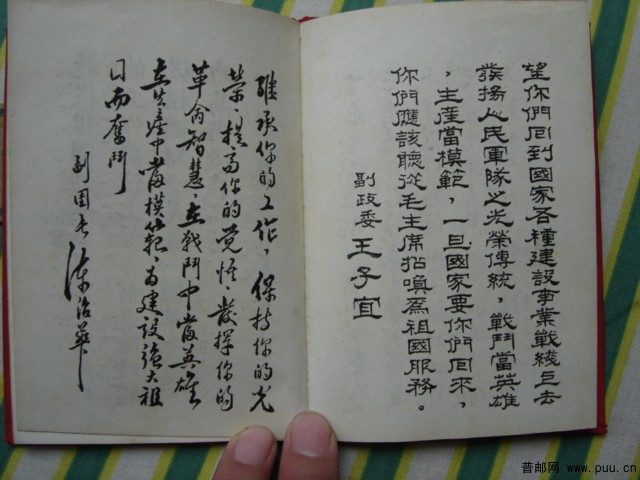 望你們回到國家各種建設事業戰綫上去
發揚人民軍隊之光榮傳統，戰鬥當英雄
，生產當模範，一旦國家要你們回來，
你們應該聽從毛主席指嗅爲祖國服務。
副政委 王子宜
繼承你的工作，保持你的光
榮，提高你的覺悟，發揮你的
革命智慧，在戰鬥中當英雄
在生產中當模範，為建設強大祖
國而奮鬥
副團長
普邮网 www.puu.cn